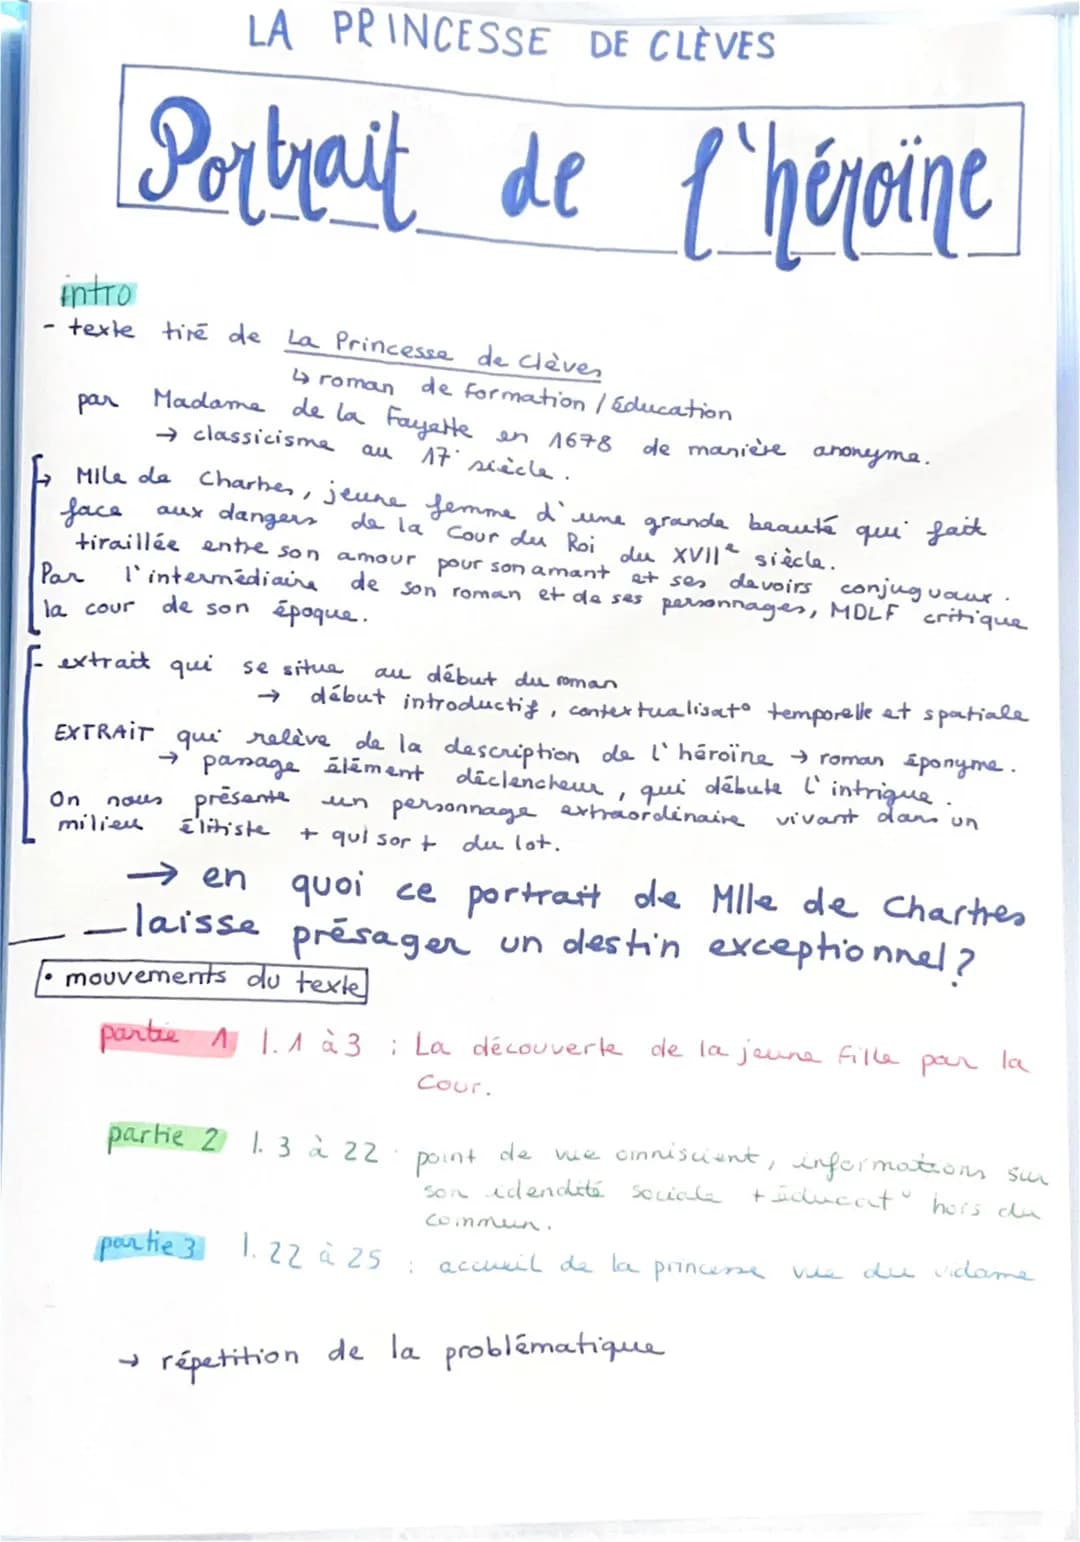 LA PRINCESSE DE CLÈVES
Portrait de l'héroïne
intro
- texte tiré de La Princesse de Clèves
↳ roman de formation / éducation
par Madame de la Fayette en 1678 de manière anonyme.
→ classicisme au 17° siècle.
↳ Mlle de Chartres, jeune femme d'une grande beauté qui fait
face aux dangers de la Cour du Roi du XVIIe siècle.
tiraillée entre son amour pour son amant et ses devoirs conjuguaux.
Par l'intermédiaire de son roman et de ses personnages, MDLF critique
la cour de son époque.
- extrait qui se situe au début du roman
→ début introductif, contextualisat° temporelle et spatiale
EXTRAIT qui relève de la description de l'héroïne → roman éponyme.
→ passage élément déclencheur, qui débute l'intrigue.
On nous présente un personnage extraordinaire vivant dans un
milieu élitiste + qui sort du lot.
→ en quoi ce portrait de Mlle de Chartres
laisse présager un destin exceptionnel ?
• mouvements du texte
partie 1 l.1 à 3 : La découverte de la jeune fille par la
Cour.
partie 2 l. 3 à 22 : point de vue omniscient, informations sur
son idendité sociale + éducat° hors du
commun.
partie 3 l. 22 à 25 : accueil de la princesse vue du vidame
→ répetition de la problématique